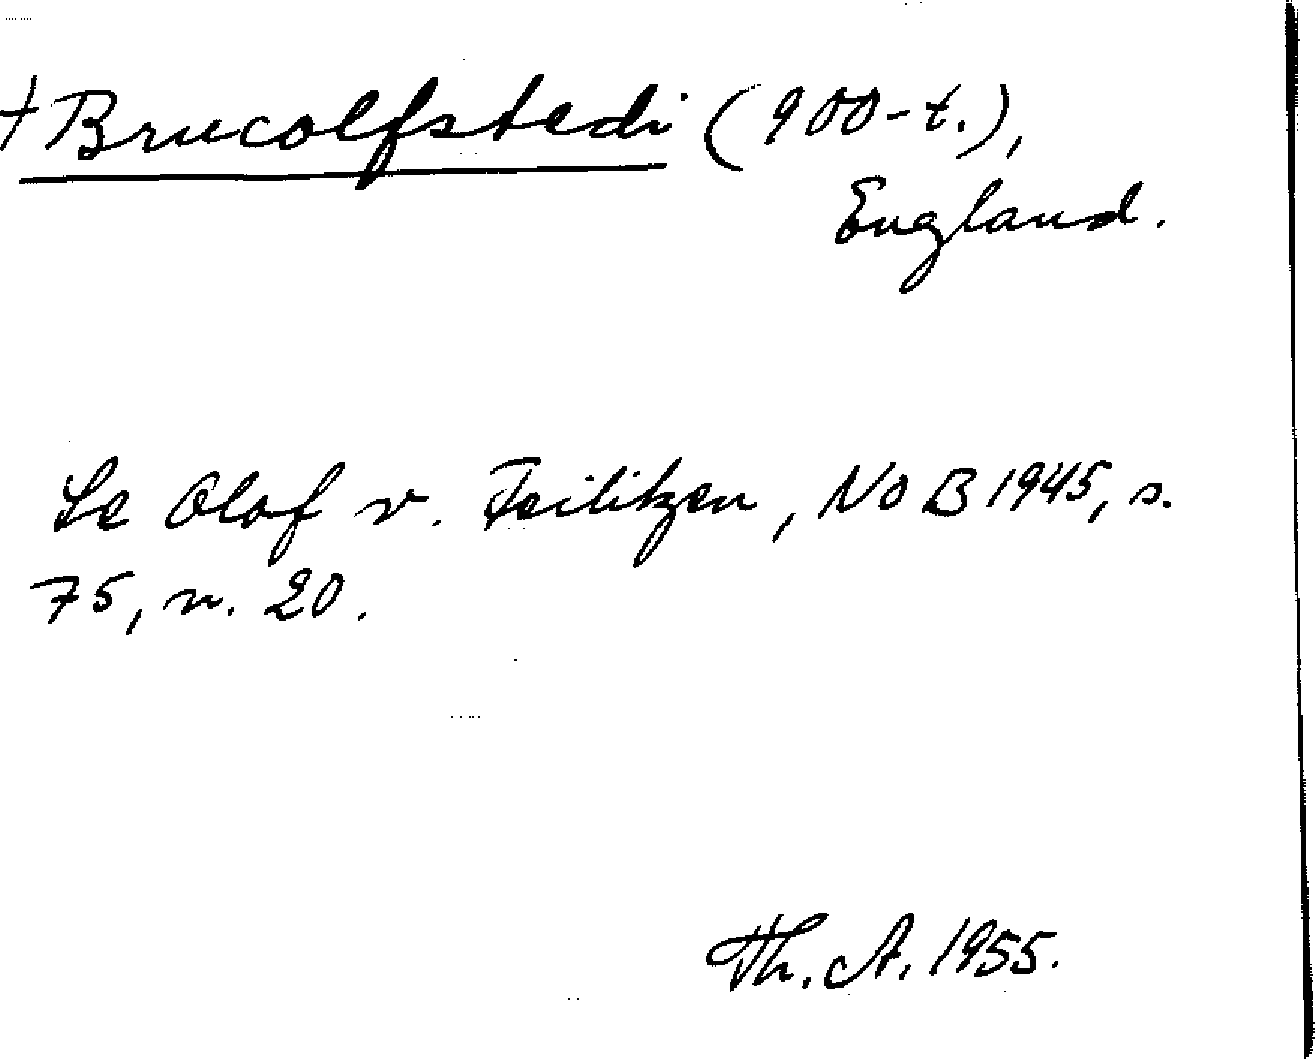 †Brucolfstedi (900-t.),
England.
Se Olof v. Feilitzen, NoB 1945, s.
75, n. 20.
Th. A. 1955.